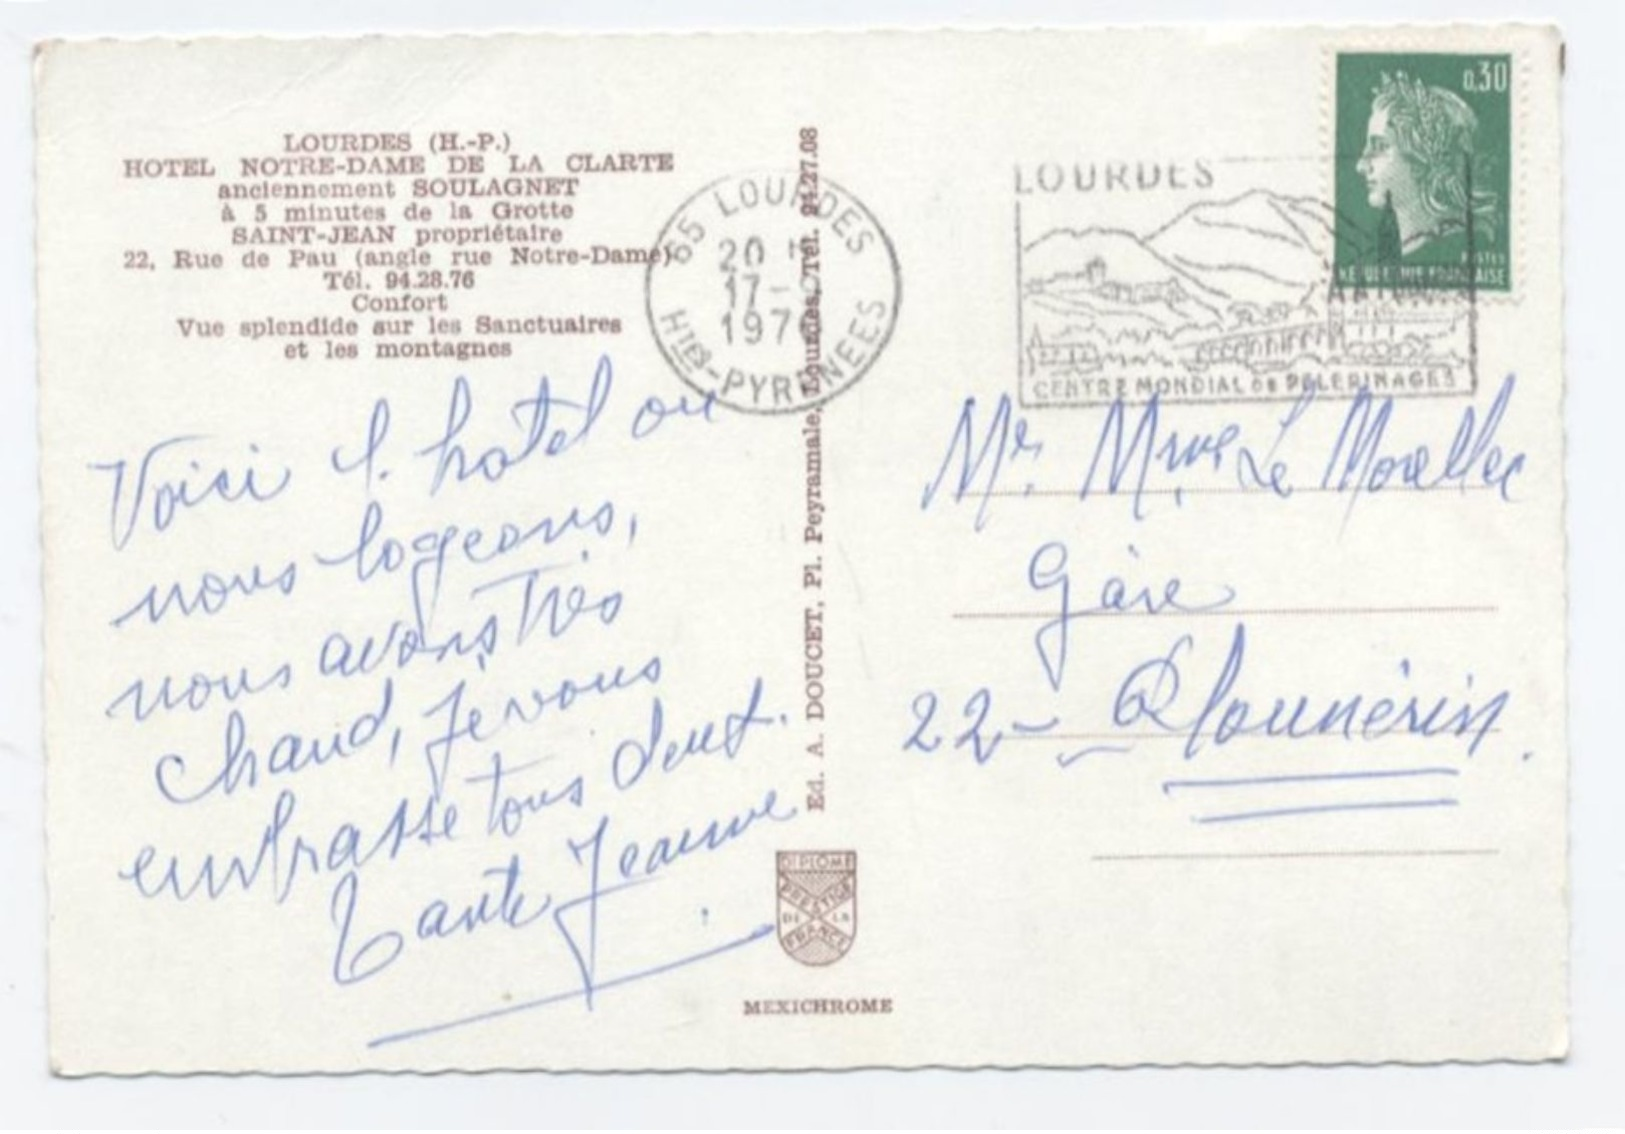 LOURDES (H.-P.)
HOTEL NOTRE-DAME DE LA CLARTE
anciennement SOULAGNET
à 5 minutes de la Grotte
SAINT-JEAN propriétaire
22, Rue de Pau (angle rue Notre-Dame)
Tél. 94.28.76
Confort
Vue splendide sur les Sanctuaires
et les montagnes
Voici l'hotel ou
nous logeons,
nous avons Très
chaud, Je vous
embrasse tous deux.
Tante Jeanne
Ed. A. DOUCET, Pl. Peyramale, Lourdes, Tél. 94.27.08
DIPLOME
PRESTIGE
DE LA
FRANCE
MEXICHROME
65 LOURDES
20 H
17-
197
HTES-PYRENEES
LOURDES
CENTRE MONDIAL DE PÈLERINAGES
0,30
POSTES
REPUBLIQUE FRANÇAISE
Mr. Mme Le Morellec
Gare
22- Plounérin.